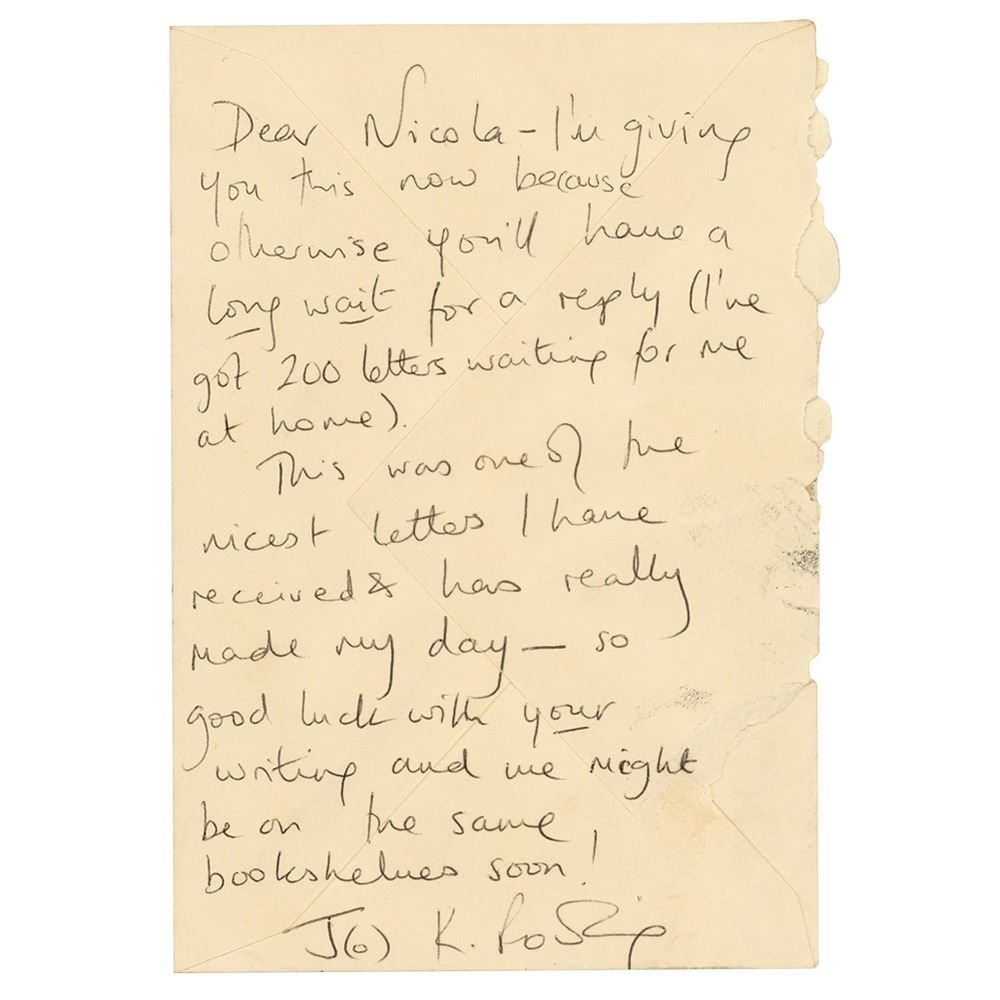 Dear Nicola - I'm giving
you this now because
otherwise you'll have a
long wait for a reply (I've
got 200 letters waiting for me
at home).
This was one of the
nicest letters I have
received & has really
made my day — so
good luck with your
writing and we might
be on the same
bookshelves soon!
J(o) K. Rowling